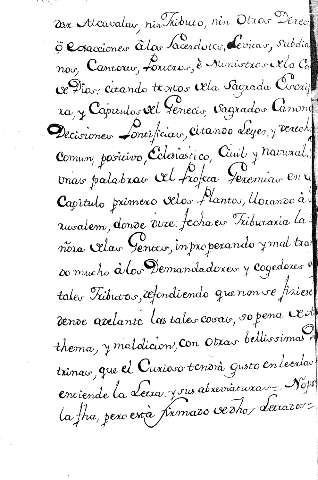 dar Alcavalas, nin Tributo, nin otros Derec
q̃ exacciones à los Sacerdotes, Levitas, Subdia
nos, Cantores, Porteros, è Ministros de la Ca
de Dios; citando textos de la Sagrada Escri
ra, y Capitulos del Genecis, Sagrados Canon
Decisiones Pontificias, citando Leyes, y derecho
comun, positivo, Eclesiastico, Civil y natural,
unas palabras del Profeta Geremias en
Capitulo primero de los Plantos, llorando à
rusalem, donde dize: fecha es Tributaria la
ñora de las Gentes, improperando y mal tra
do mucho à los Demandadores y cogedores
tales Tributos, defendiendo que non se ficiese
dende adelante las tales cosas, so pena de
thema, y maldicion, con otras bellissimas
trinas, que el Curioso tendrà gusto en leerlas
entiende la Letra y sus abreviaturas=
la fha, pero està firmado de dho Letrado=